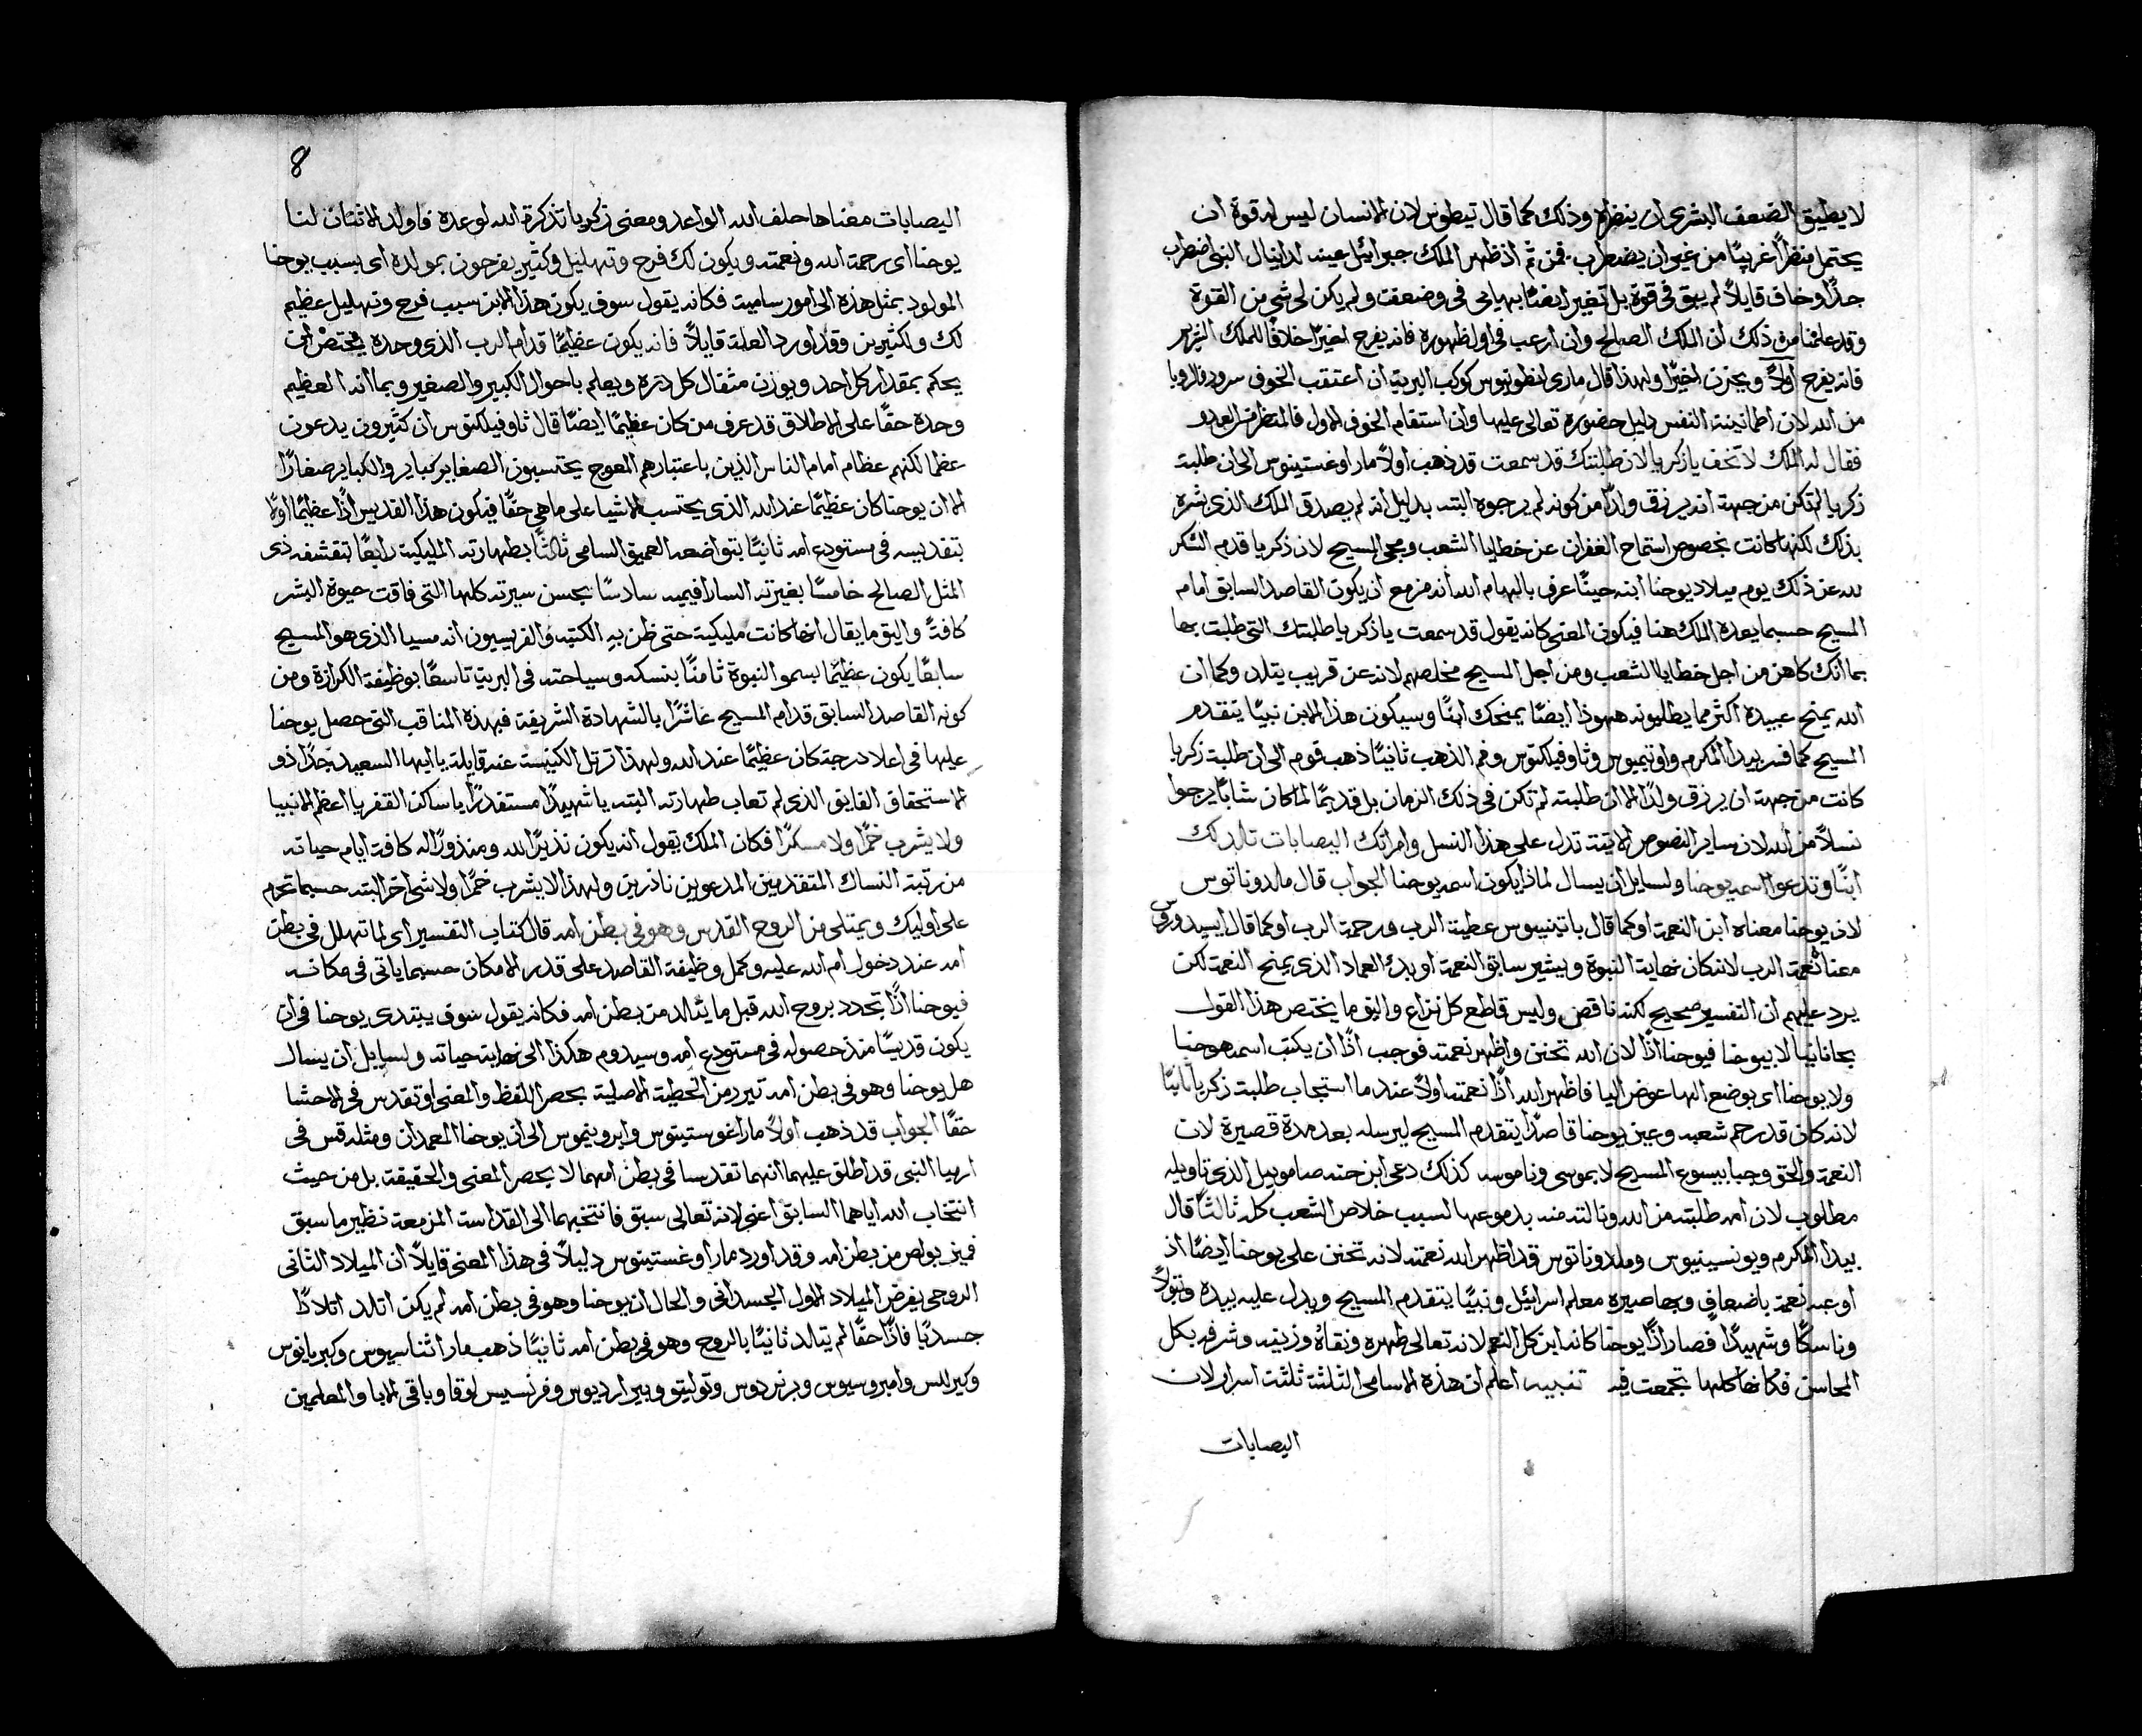 لا يطيق الضعف البشرى ان ينظره وذلك كما قال تيطوس لان الانسان ليس له قوة ان
يحتمل منظرًا غريبًا من غير ان يضطرب فمن ثم اذ ظهر الملك جبرائيل عينه لدانيال النبى اضطرب
جدًا وخاف قايلاً لم يبق فىّ قوة بل تغير ايضًا بهاىٔ فىّ وضعفت ولم يكن لى شى من القوة
وقد علمنا من ذلك ان الملك الصالح وان ارعب فى اول ظهوره فانه يفرح اخيرًا خلافًا للملك الشرير
فانه يفرح اولاً ويحزن اخيرًا ولهذا قال مارى انطونيوس كوكب البرية ان اعتقب الخوف سرور فالرويا
من الله لان اطمانينة النفس دليل حضوره تعالى عليها وان استقام الخوف الاول فالمنظر من العدو
فقال له الملك لا تخف يا زكريا لان طلبتك قد سمعت قد ذهب اولاً مار اوغستينوس الى ان طلبة
زكريا لم تكن من جهة انه يرزق ولدًا من كونه لم يرجوه البته بدليل انه لم يصدق الملك الذى بشره
بذلك لكنها كانت بخصوص استماح الغفران عن خطايا الشعب ومجى المسيح لان زكريا قدم الشكر
لله عن ذلك يوم ميلاد يوحنا ابنه حينًا عرف بالهام الله انه مزمع ان يكون القاصد السابق امام
المسيح حسبما يعده الملك هنا فيكون المعنى كانه يقول قد سمعت يا زكريا طلبتك التى طلبت بها
بما انك كاهن من اجل خطايا الشعب ومن اجل المسيح مخلصهم لانه عن قريب يتلد وكما ان
الله يمنح عبيده اكثر مما يطلبونه فهوذا ايضًا يمنحك ابنًا وسيكون هذا الابن نبيًا يتقدم
المسيح كما فسر بيدا المكرم واوتيميوس وثاوفيلكتوس وفم الذهب ثانيًا ذهب قوم الى ان طلبة زكريا
كانت من جهة ان يرزق ولدًا الا ان طلبته لم تكن فى ذلك الزمان بل قديمًا لما كان شابًا يرجوا
نسلاً من الله لان ساير النصوص الاتية تدل على هذا النسل وامراتك اليصابات تالد لك
ابنًا وتدعوا اسمه يوحنا ولسايل ان يسال لماذا يكون اسمه يوحنا الجواب قال مالدوناتوس
لان يوحنا معناه ابن النعمة او كما قال باتينيوس عطية الرب ورحمة الرب او كما قال ايسيدوروس
معناه نعمة الرب لانه كان نهاية النبوة ويشير سابق النعمة او بدء العماد الذى يمنح النعمة لكن
يرد عليهم ان التفسير صحيح لكنه ناقص وليس قاطع كل نزاع واليق ما يختص هذا القول
بحانانيا لا بيوحنا فيوحنا اذًا لان الله تحنن واظهر نعمته فوجب اذًا ان يكتب اسمه هوحنا
ولا يوحنا اى بوضع الها عوض اليا فاظهر الله اذًا نعمته اولاً عندما استجاب طلبة زكريا ثانيًا
لانه كان قد رحم شعبه وعين يوحنا قاصدًا يتقدم المسيح ليرسله بعد مدة قصيرة لان
النعمة والحق وجبا بيسوع المسيح لا بموسى وناموسه كذلك دعى ابن حنه صاموييل الذى تاويله
مطلوب لان امه طلبته من الله ونالته منه بدموعها لسبب خلاص الشعب كله ثالثًا قال
بيدا المكرم ويونسينيوس ومالدوناتوس قد اظهر الله نعمته لانه تحنن على يوحنا ايضًا اذ
اوعبه نعمة باضعاف وبما صيره معلم اسرائيل ونبيًا يتقدم المسيح ويدل عليه بيده وبتولاً
وناسكًا وشهيدًا فصار اذًا يوحنا كانه ابن كل النعم لانه تعالى طهره ونقاه وزينه وشرفه بكل
المحاسن فكانها كلها تجمعت فيه تنبيه اعلم ان هذه الاسامى الثلثة ثلثة اسرار لان
اليصابات
8
اليصابات معناها حلف الله الواعد ومعنى زكريا تذكرة الله لوعده فاولد الاثنان لنا
يوحنا اى رحمة الله ونعمته ويكون لك فرح وتهليل وكثير يفرحون بمولده اى بسبب يوحنا
المولود بمثل هذه الى امور سامية فكانه يقول سوف يكون هذا الابن سبب فرح وتهليل عظيم
لك ولكثيرين وقد اورد العلة قايلاً فانه يكون عظيمًا قدام الرب الذى وحده يختص ان
يحكم بمقدار كل احد ويوزن مثقال كل ذرة ويعلم باحوال الكبير والصغير وبما انه العظيم
وحده حقًا على الاطلاق قد عرف من كان عظيمًا ايضًا قال ثاوفيلكتوس ان كثيرون يدعون
عظما لكنهم عظام امام الناس الذين باعتبارهم المعوج يحتسبون الصغاير كباير والكباير صغارًا
الا ان يوحنا كان عظيمًا عند الله الذى يحتسب الاشيا على ما هى حقًا فيكون هذا القديس اذًا عظيمًا اولاً
بتقديسه فى مستودع امه ثانيًا بتواضعه العميق السامى ثالثًا بطهارته المليكية رابعًا بتقشفه ذى
المثل الصالح خامسًا بغيرته السارافيميه سادسًا بحسن سيرته كلها التى فاقت حيوة البشر
كافةً واليق ما يقال انها كانت مليكية حتى ظن به الكتبه والفريسيون انه مسيا الذى هو المسيح
سابعًا يكون عظيمًا بسمو النبوة ثامنًا بنسكه وسياحته فى البرية تاسعًا بوظيفة الكرازة ومن
كونه القاصد السابق قدام المسيح عاشرًا بالشهادة الشريفة فبهذه المناقب التى حصل يوحنا
عليها فى اعلا درجة كان عظيمًا عند الله ولهذا ترتل الكنيسة عنه قايلة يا ايها السعيد جدًا ذو
الاستحقاق الفايق الذى لم تعاب طهارته البته يا شهيدًا مستقدرًا يا ساكن القفر يا اعظم الانبيا
ولا يشرب خمرًا ولا مسكرًا فكان الملك يقول انه يكون نذيرًا لله ومنذورًا له كافة ايام حياته
من رتبة النساك المتقدمين المدعوين ناذرين ولهذا لا يشرب خمرًا ولا شى اخر البته حسبما تحرم
على اوليك ويمتلى من الروح القدس وهو فى بطن امه قال كتاب التفسير اى لما تهلل فى بطن
امه عند دخول ام الله عليه وكمل وظيفة القاصد على قدر الامكان حسبما ياتى فى مكانه
فيوحنا اذًا تحدد بروح الله قبل ما يتالد من بطن امه فكانه يقول سوف يبتدى يوحنا فى ان
يكون قديسًا منذ حصوله فى مستودع امه وسيدوم هكذا الى نهاية حياته ولسايل ان يسال
هل يوحنا وهو فى بطن امه تبرر من الخطية الاصلية بحصر اللفظ والمعنى او تقدس فى الاحشا
حقًا الجواب قد ذهب اولاً مار اغوستينوس وايرونيموس الى ان يوحنا المعمدان ومثله قس فى
ارميا النبى قد اطلق عليهما انهما تقدسا فى بطن امهما لا بحصر المعنى والحقيقة بل من حيث
انتخاب الله اياهما السابق اعنى لانه تعالى سبق فانتخبهما الى القداسة المزمعة نظير ما سبق
فميز بولص من بطن امه وقد اورد مار اوغستينوس دليلاً فى هذا المعنى قايلاً ان الميلاد الثانى
الروحى يفرض الميلاد الاول الجسدانى والحال ان يوحنا وهو فى بطن امه لم يكن اتلد اتلادًا
جسديًا فاذًا حقًا لم يتالد ثانيًا بالروح وهو فى بطن امه ثانيًا ذهب مار اثناسيوس وكبريانوس
وكيرللس وامبروسيوس وبرنردوس وتوليتو وبيرارديوس وفرنسيس لوقا وباقى الابا والمعلمين